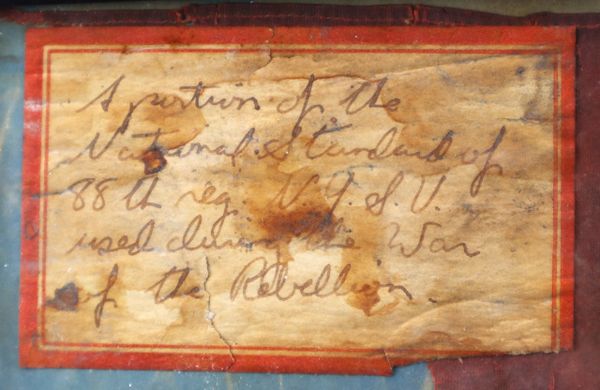 A portion of the
National Standard of
88th reg. N.Y.S.V.
used during the War
of the Rebellion.